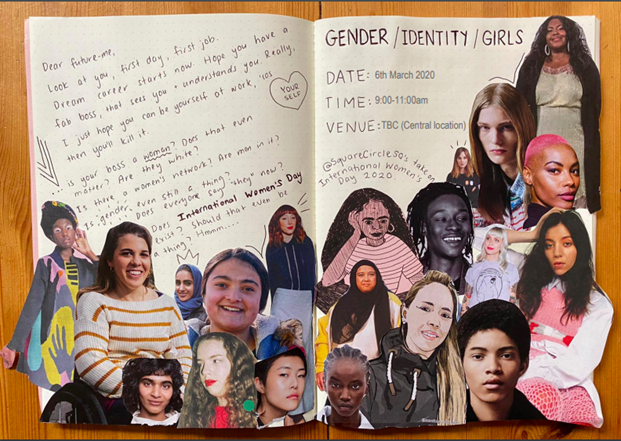 Dear future-me,
Look at you, first day, first job.
Dream career starts now. Hope you have a
fab boss, that sees you + understands you. Really,
I just hope you can be yourself at work, 'ios
then you'll kill it.
YOUR
SELF
Is your boss a woman? Does that even
matter? Are they white?
Is there a women's network? Are men in it?
Is gender even still a thing?
Does everyone say "they" now?
Does International Women's Day
exist? Should that even be
a thing? Hmmm....
GENDER / IDENTITY / GIRLS
DATE: 6th March 2020
TIME: 9:00-11:00am
VENUE: TBC (Central location)
@SquareCircle50's take on
International Women's
Day 2020